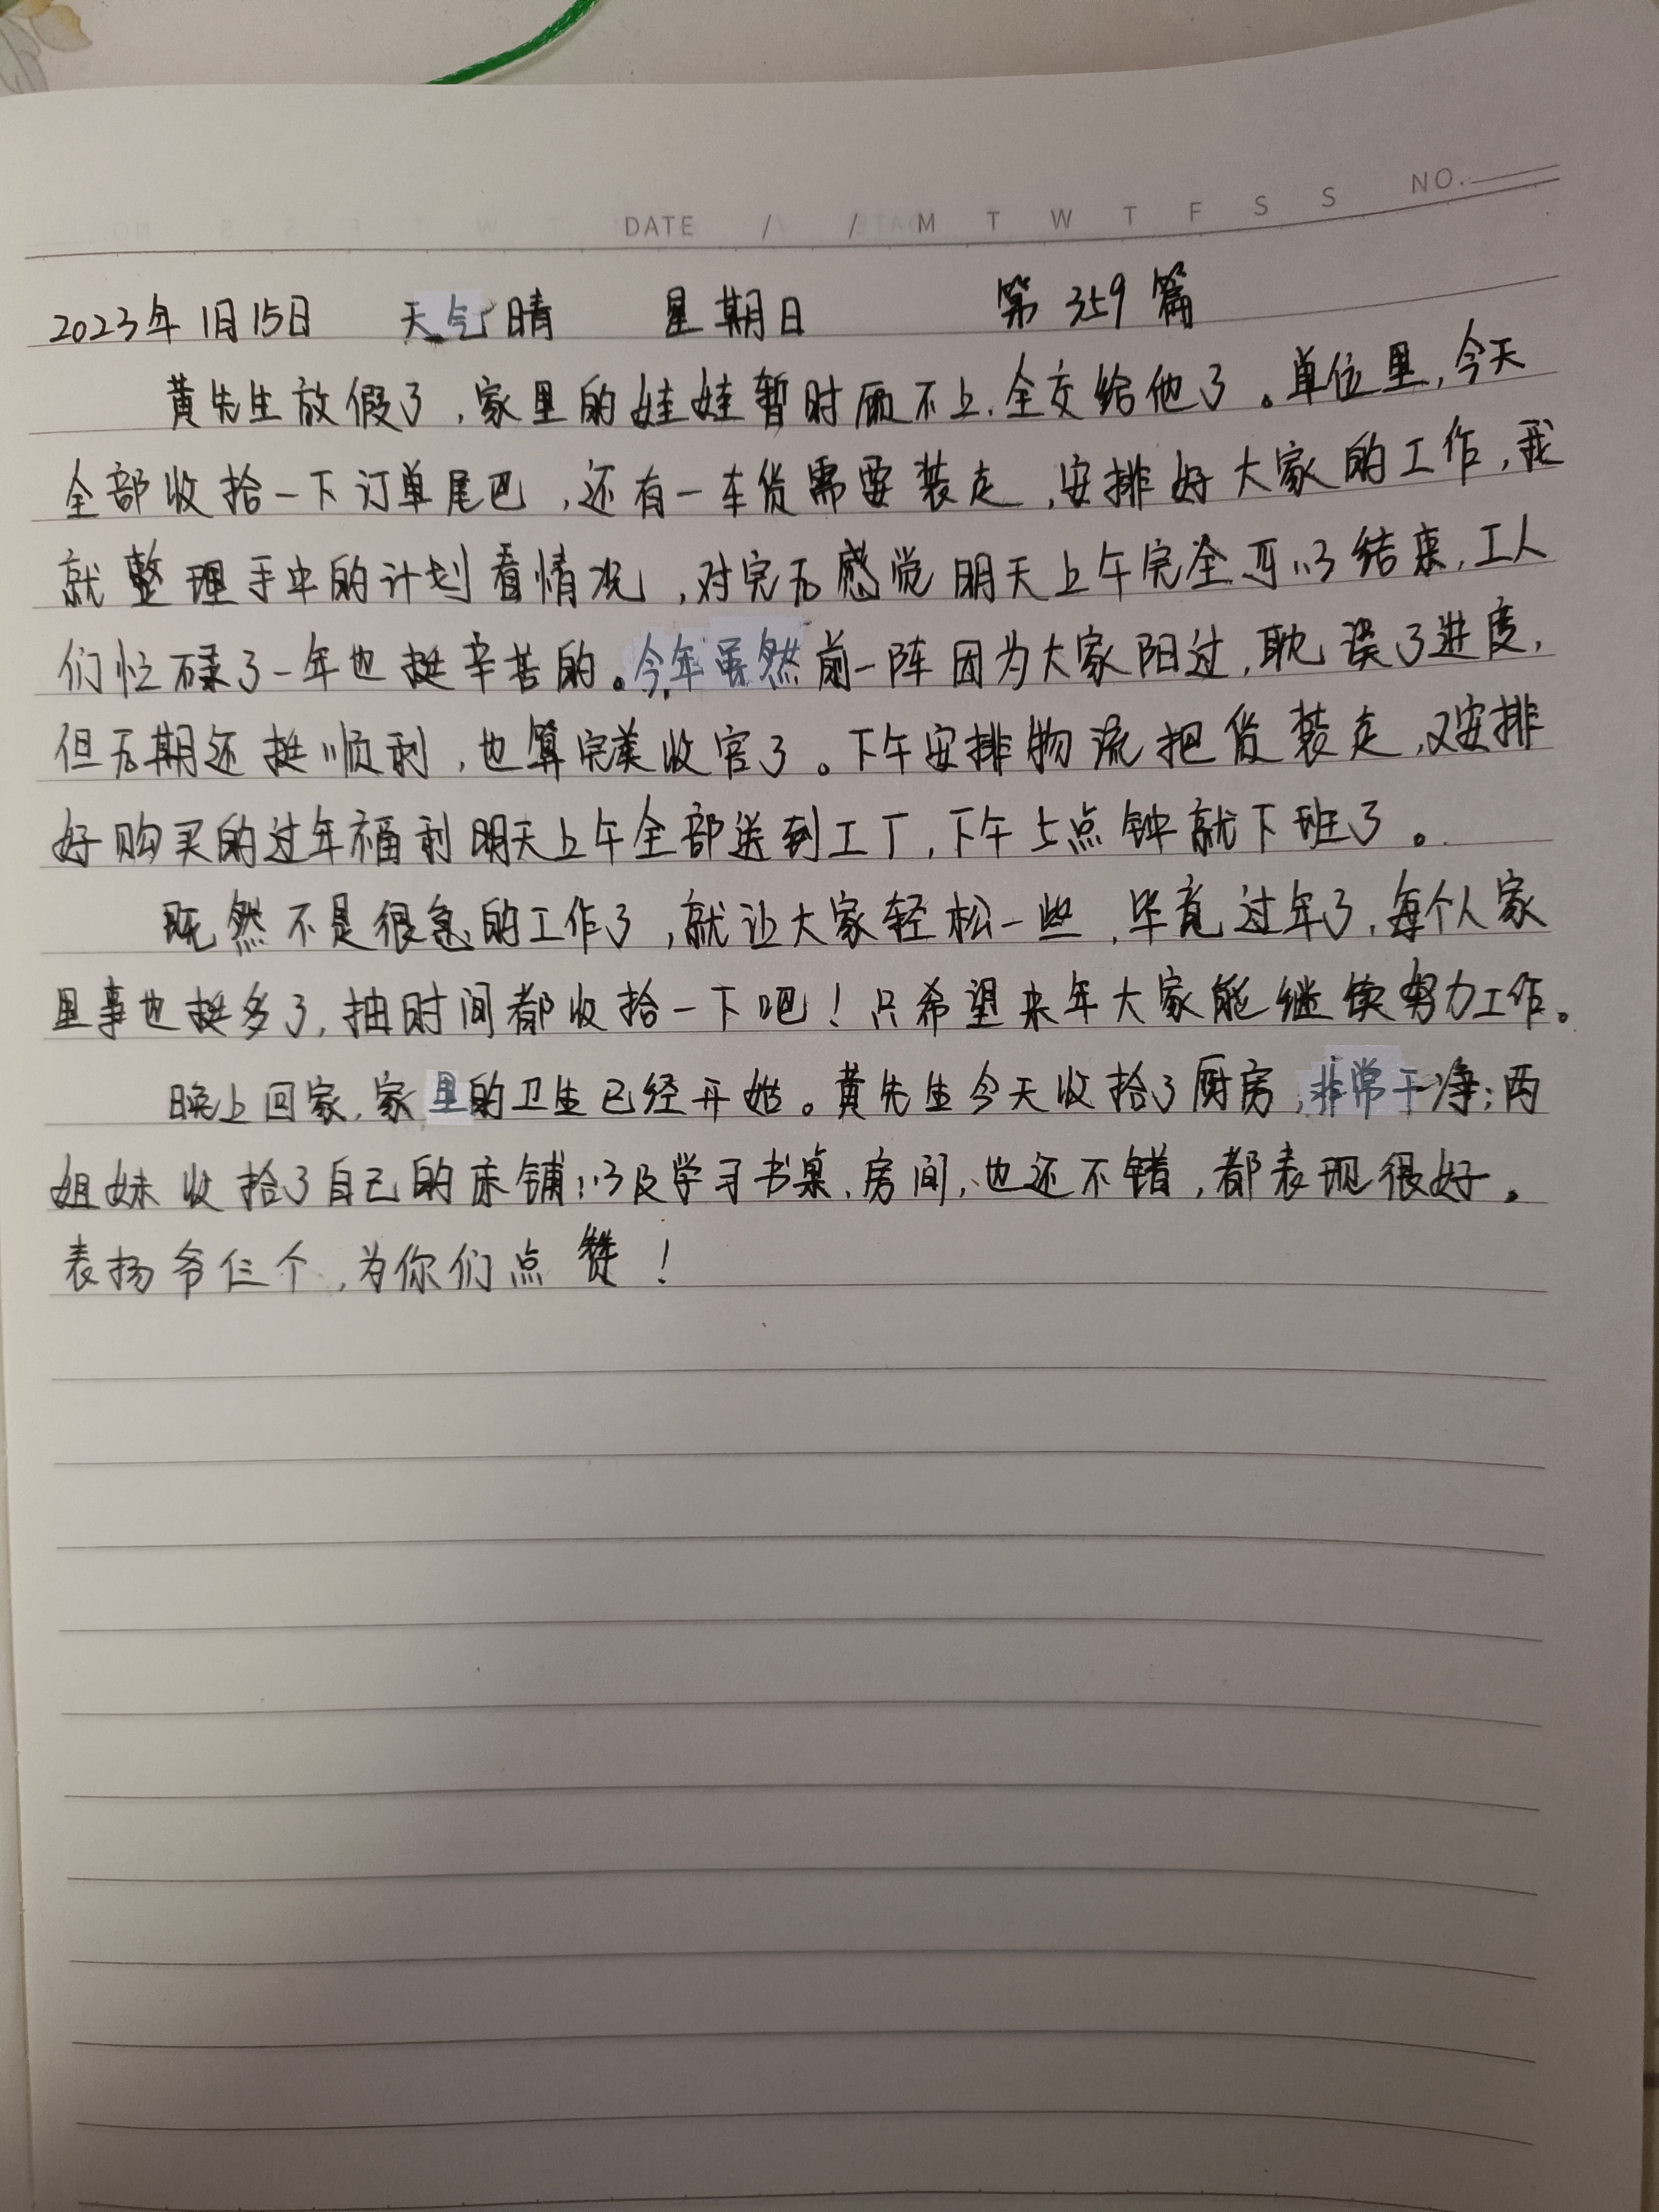 DATE / / M T W T F S S NO.
2023年1月15日 天气晴 星期日 第359篇
黄先生放假了,家里的娃娃暂时顾不上,全交给他了。单位里,今天
全部收拾一下订单尾巴,还有一车货需要装走,安排好大家的工作,我
就整理手中的计划看情况,对完后感觉明天上午完全可以结束,工人
们忙碌了一年也挺辛苦的。今年虽然前一阵因为大家阳过,耽误了进度,
但后期还挺顺利,也算完美收官了。下午安排物流把货装走,又安排
好购买的过年福利明天上午全部送到工厂,下午5点钟就下班了。
既然不是很急的工作了,就让大家轻松一些,毕竟过年了,每个人家
里事也挺多了,抽时间都收拾一下吧!只希望来年大家能继续努力工作。
晚上回家,家里的卫生已经开始。黄先生今天收拾了厨房,非常干净;两
姐妹收拾了自己的床铺以及学习书桌、房间,也还不错,都表现很好。
表扬爷仨个,为你们点赞!